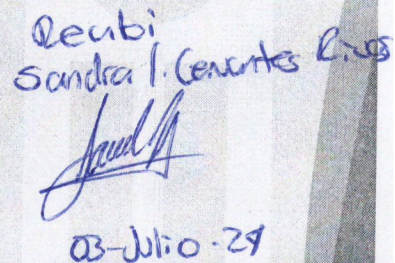 Recibi
Sandra I. Cervantes Rivas
03-Julio-24